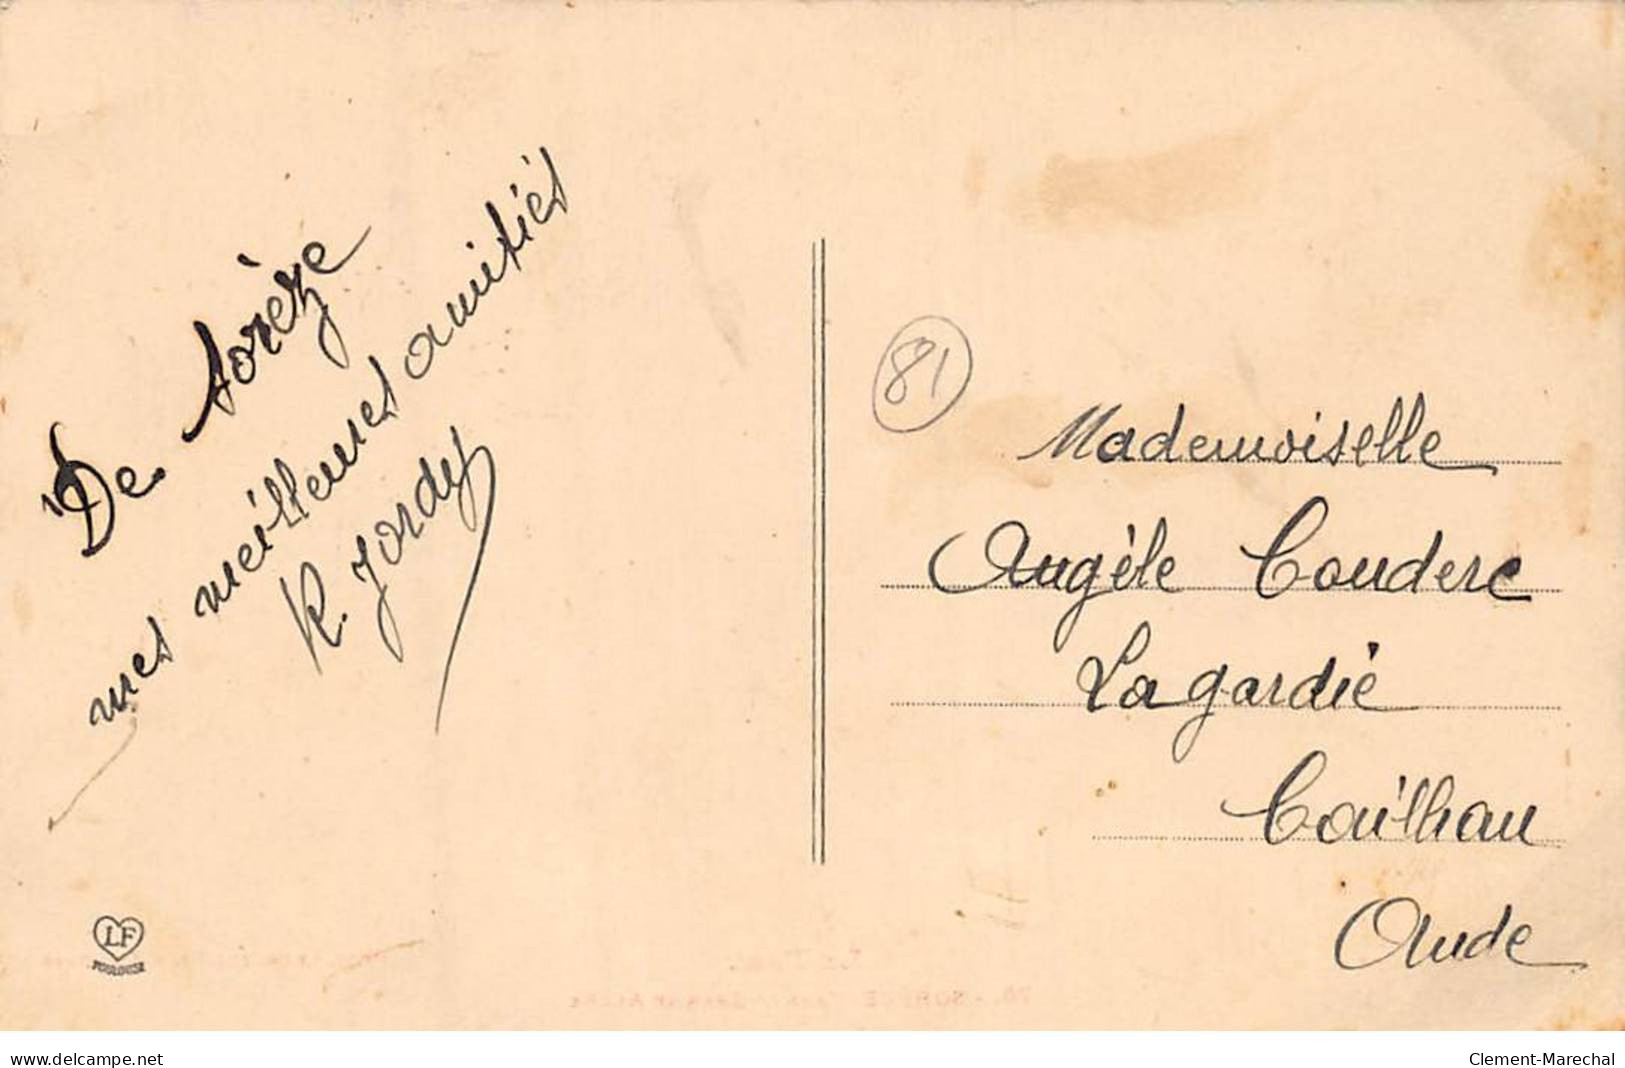 De Sorèze
mes meilleures amitiés
R. Jordy
81
Mademoiselle
Angèle Couderc
Lagardie
Cailhau
Aude
LF
TOULOUSE
www.delcampe.net
Clement-Marechal